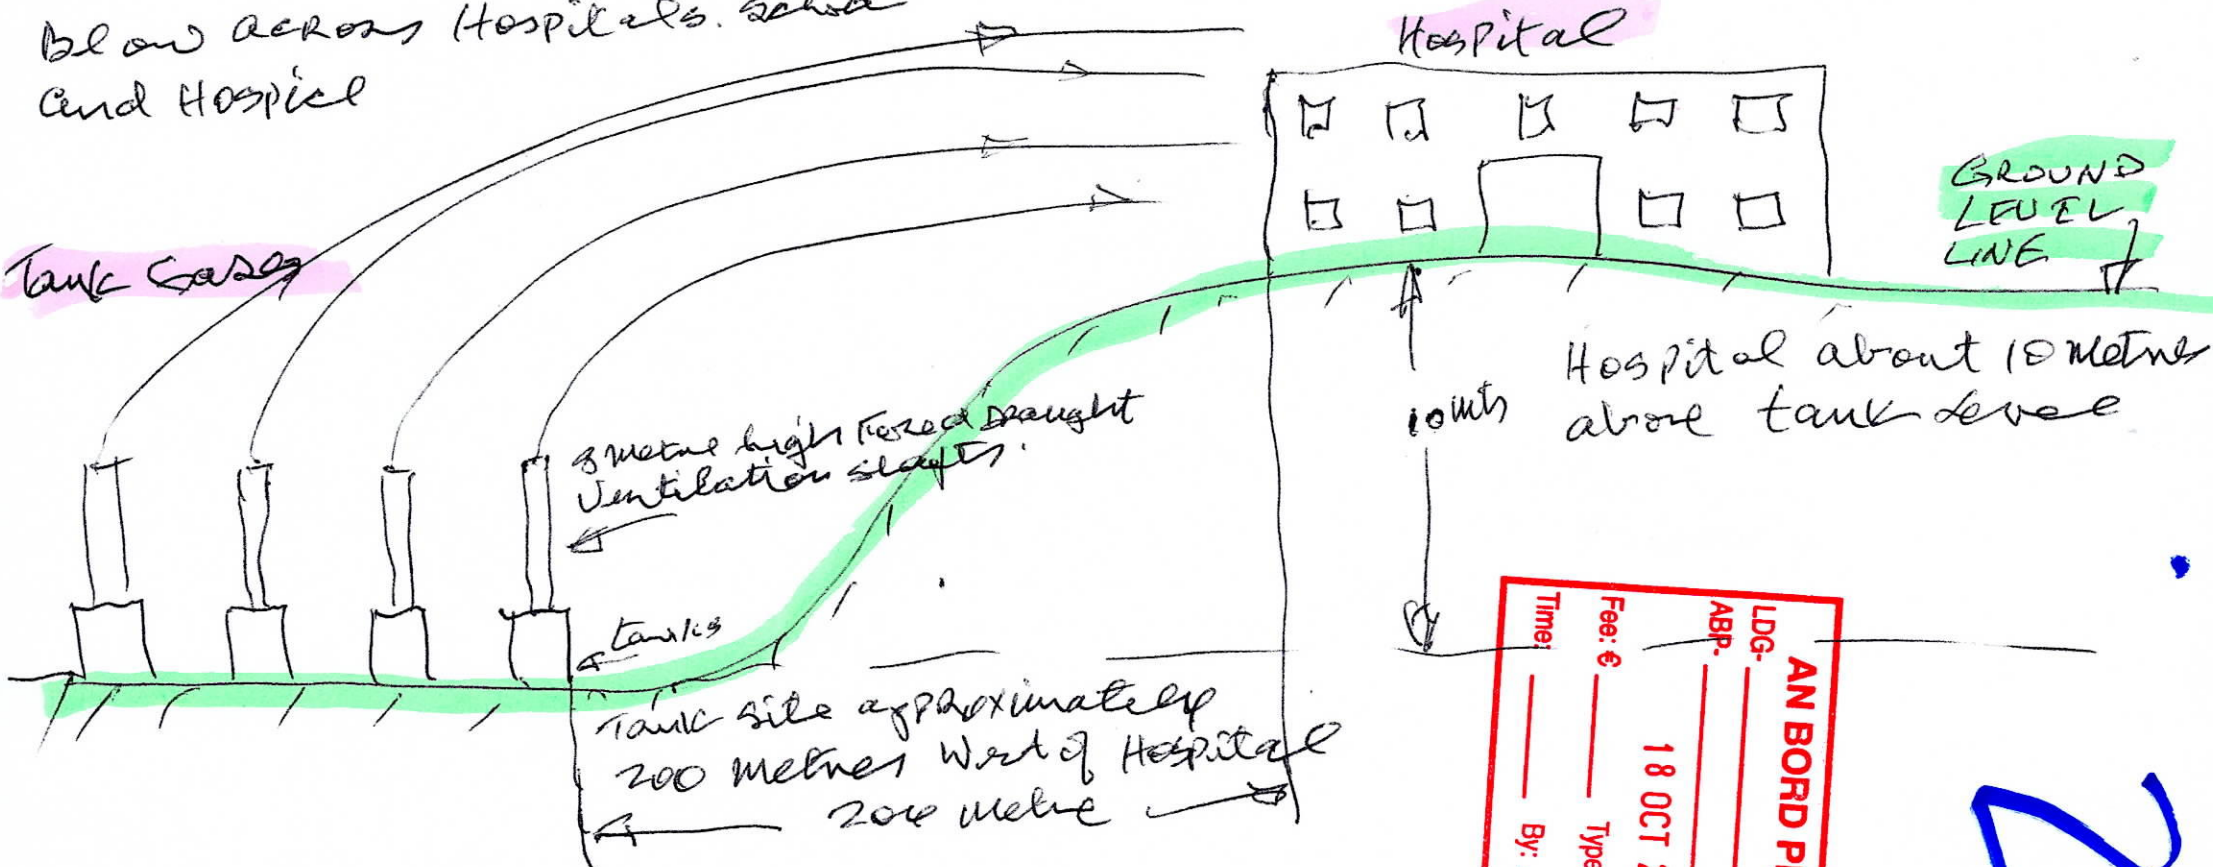 Blow across Hospitals. School
and Hospice
Hospital
GROUND
LEVEL
LINE
Tank Gases
Hospital about 10 Metres
above tank level
10 mts
3 metre high Forced Draught
Ventilation shafts.
tanks
Tank site approximately
200 metres West of Hospital
200 metre
AN BORD P
LDG-
ABP-
18 OCT 2
Fee: € Type
Time: By:
2.